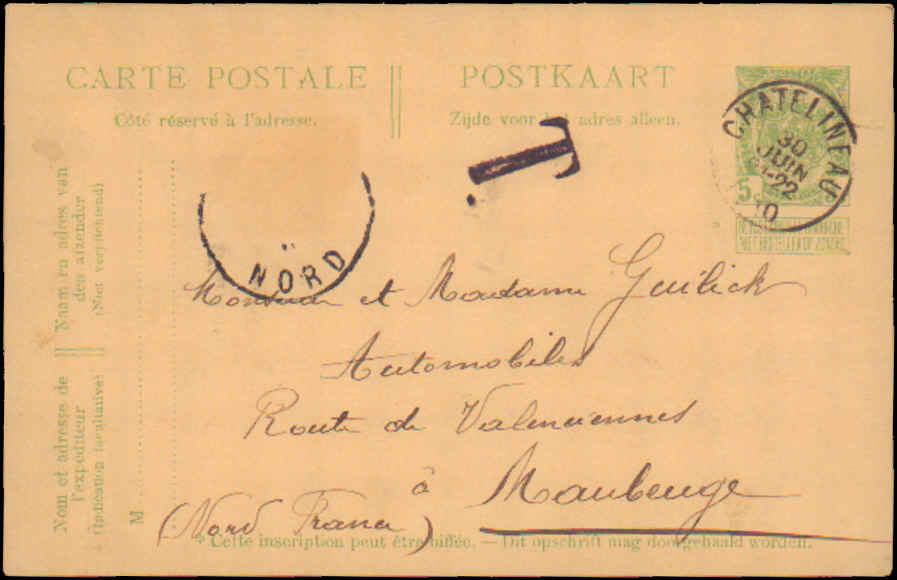 CARTE POSTALE
Côté réservé à l'adresse.
POSTKAART
Zijde voor het adres alleen.
CHATELINEAU
30
JUIN
22
10
5
T
NORD
Naam en adres van
den afzender
(Niet verplichtend)
Nom et adresse de
l'expéditeur
(Indication facultative)
M
Monsieur et Madame Guilick
Automobiles
Route de Valenciennes
à Maubeuge
(Nord France)
* Cette inscription peut être biffée. — Dit opschrift mag doorgehaald worden.